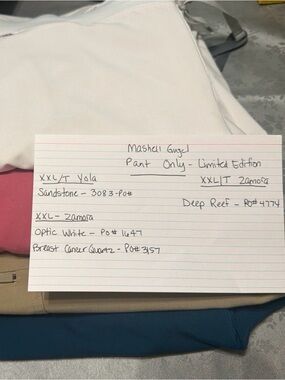 Mashell Gugel
Pant Only - Limited Edition
XXL/T Yola
Sandstone - 3083-PO#
XXL/T Zamora
Deep Reef - PO# 4774
XXL - Zamora
Optic White - PO# 1647
Breast Cancer Quartz - PO# 3157